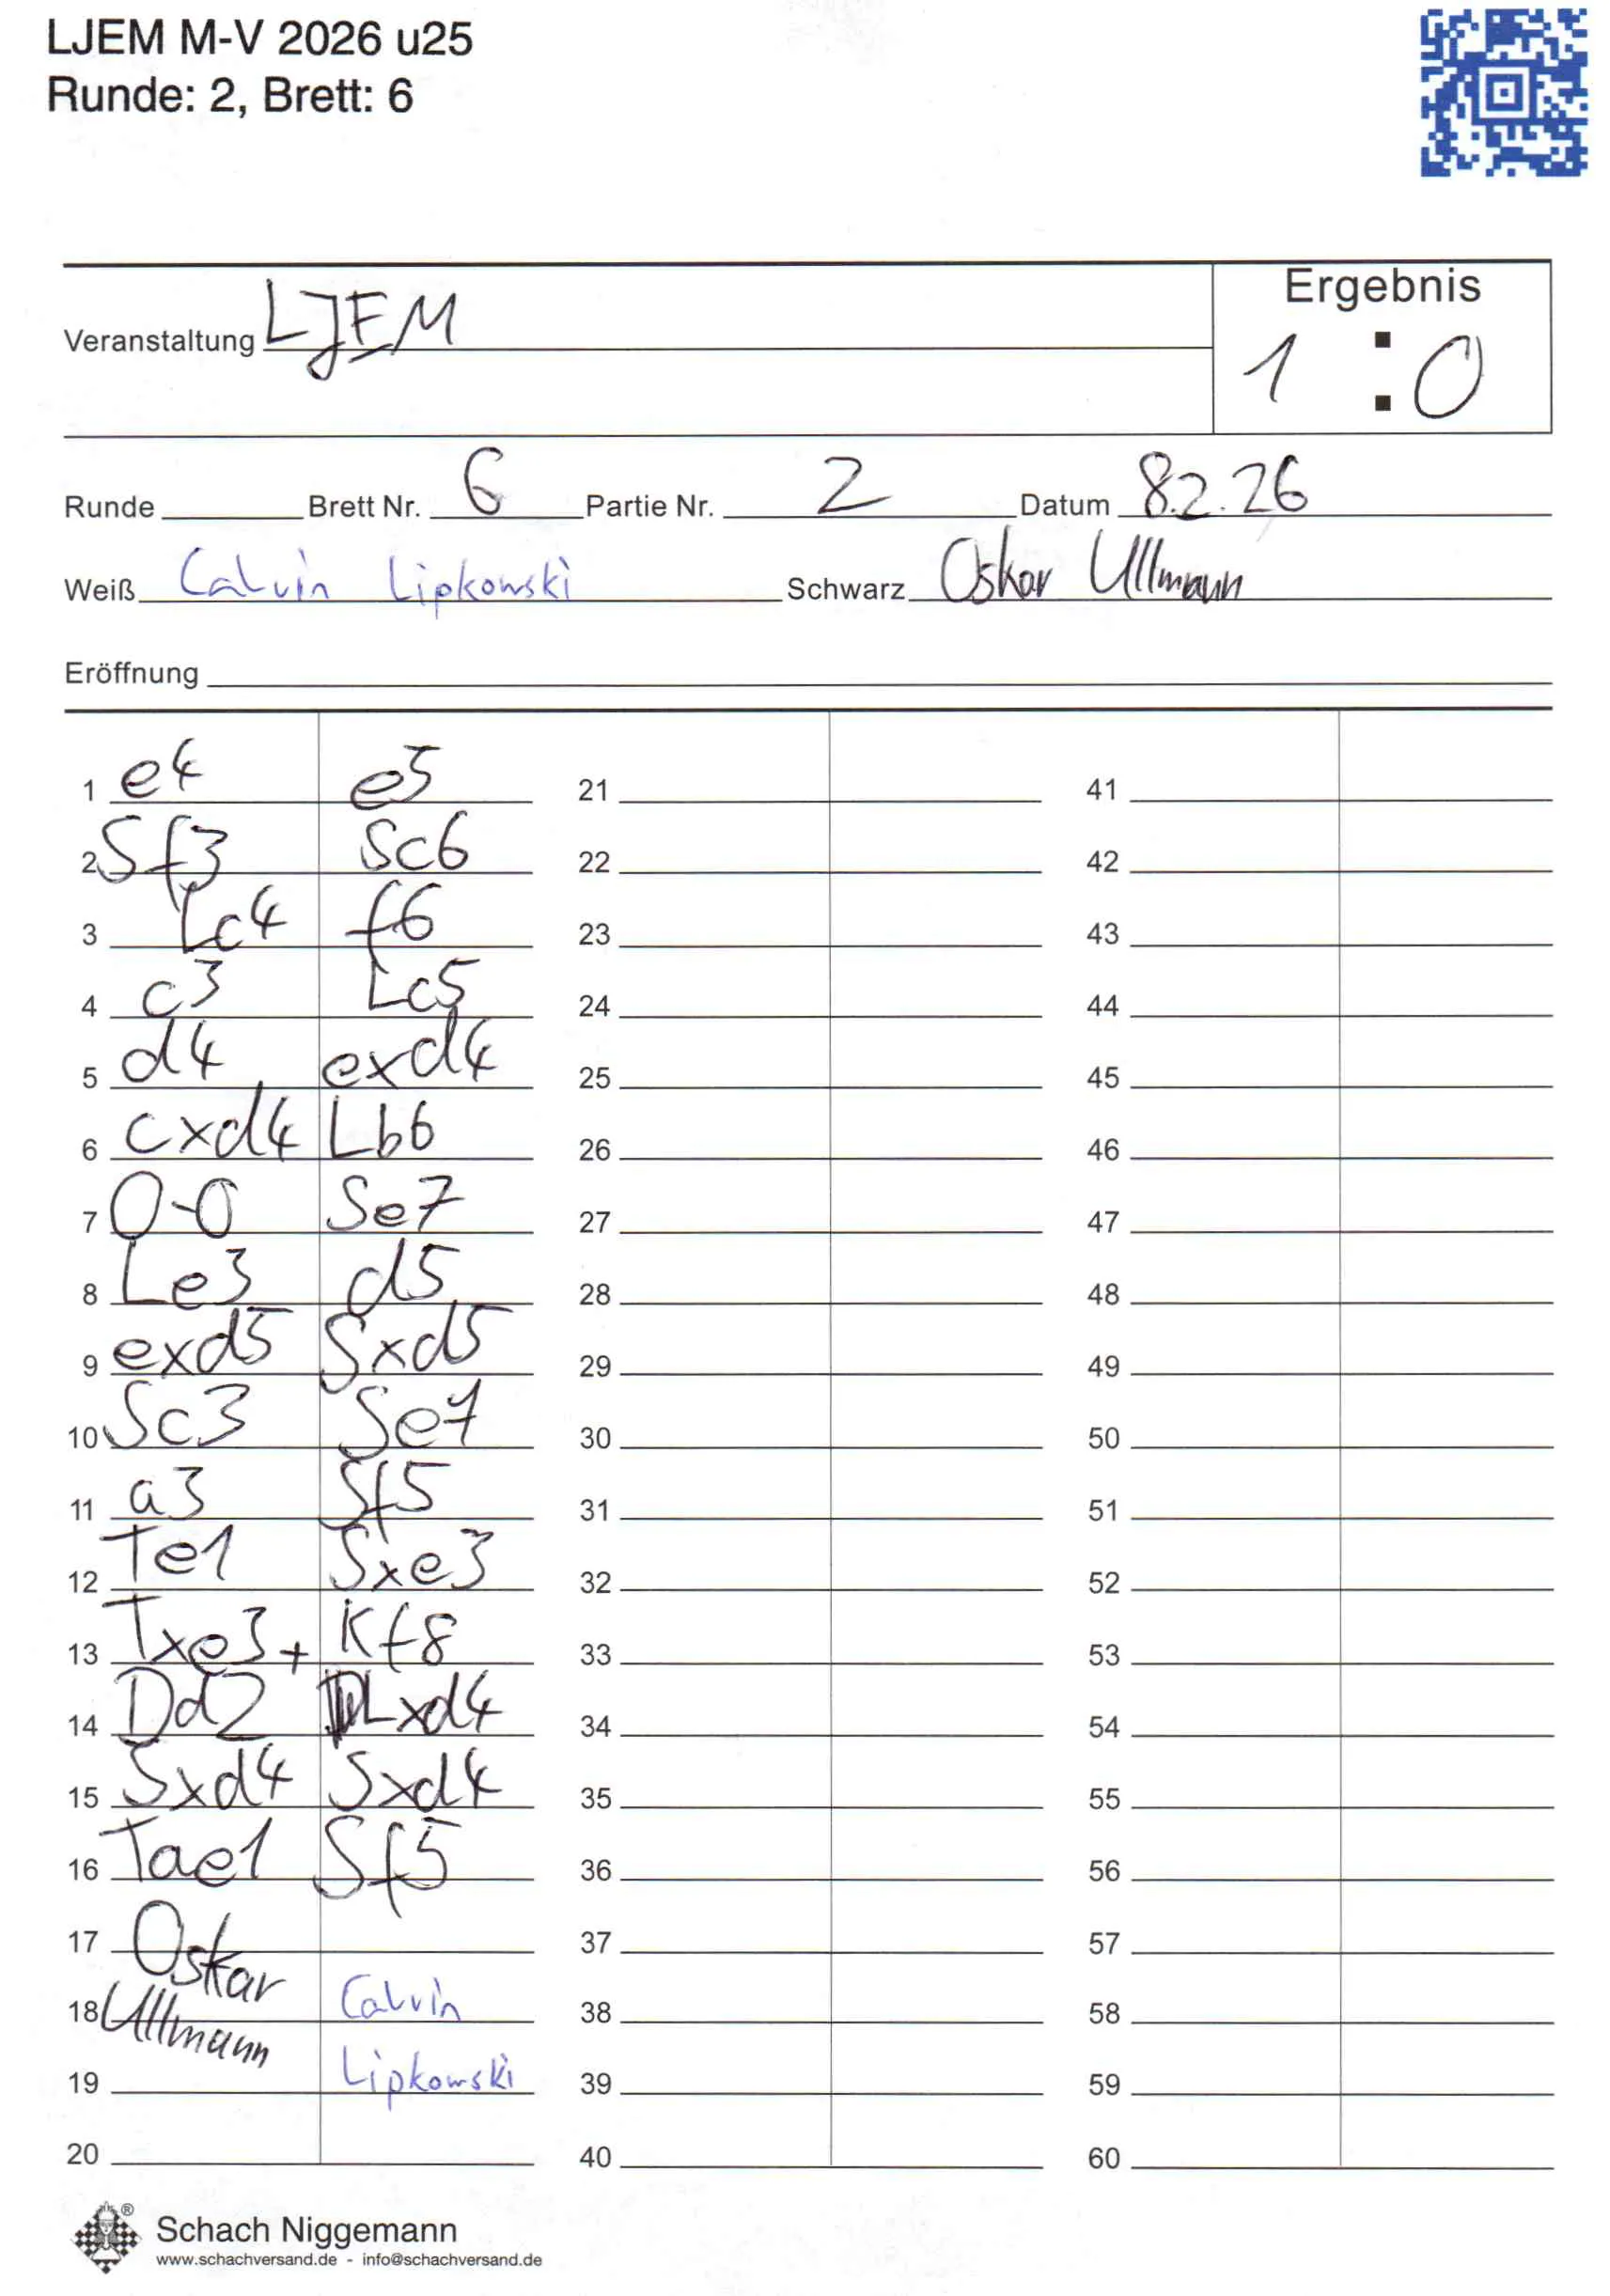 LJEM M-V 2026 u25
Runde: 2, Brett: 6
Ergebnis
Veranstaltung LJEM
1 : 0
Runde Brett Nr. 6 Partie Nr. 2 Datum 8.2.26
Weiß Calvin Lipkowski Schwarz Oskar Ullmann
Eröffnung
1 e4 e5 21 41
2 Sf3 Sc6 22 42
3 Lc4 f6 23 43
4 c3 Lc5 24 44
5 d4 exd4 25 45
6 cxd4 Lb6 26 46
7 0-0 Se7 27 47
8 Le3 d5 28 48
9 exd5 Sxd5 29 49
10 Sc3 Se7 30 50
11 a3 Sf5 31 51
12 Te1 Sxe3 32 52
13 Txe3+ Kf8 33 53
14 Dd2 Lxd4 34 54
15 Sxd4 Sxd4 35 55
16 Tae1 Sf5 36 56
17 Oskar 37 57
18 Ullmann Calvin 38 58
19 Lipkowski 39 59
20 40 60
Schach Niggemann
www.schachversand.de - info@schachversand.de